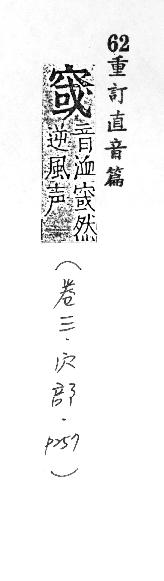 62重訂直音篇
窢
音洫窢然
逆風声
(卷三·穴部·p257)